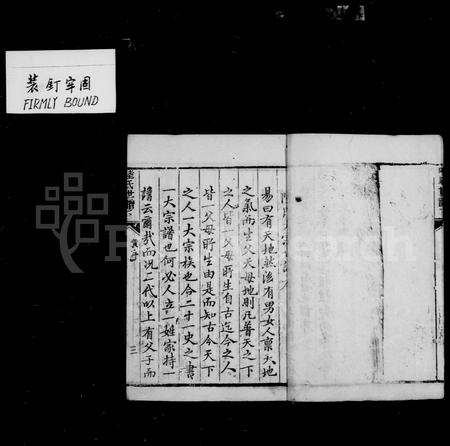 装釘牢固
FIRMLY BOUND
易曰有天地然後有男女人稟天地
之氣而生父天母地則凡普天之下
之人皆一父母所生自古迄今之人
皆一父母所生由是而知古今天下
之人一大宗族也今二十一史之書
一大宗譜也何必人立一姓家持一
譜云爾哉而況二代以上有父子而
氏世譜
三